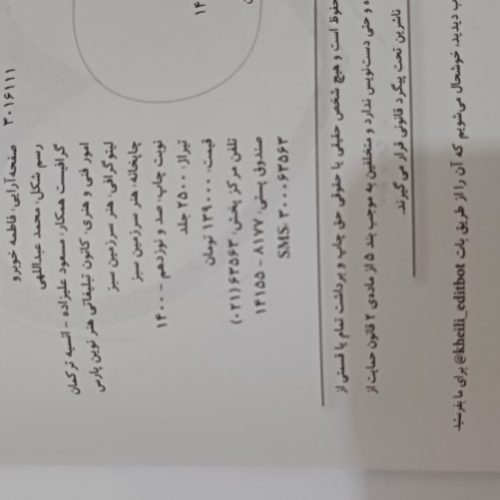 ۳۰۱۶۱۱۱
صفحه‌آرایی: فاطمه خوبرو
رسم شکل: محمد عبداللهی
گرافیست همکار: مسعود علیزاده - انسیه ترکمان
امور فنی و هنری: کانون تبلیغاتی هنر نوین پارس
لیتوگرافی: هنر سرزمین سبز
چاپخانه: هنر سرزمین سبز
نوبت چاپ: صد و نوزدهم - ۱۴۰۰
تیراژ: ۲۵۰۰ جلد
قیمت: ۱۳۹۰۰۰ تومان
تلفن مرکز پخش: ۶۳۵۶۳ (۰۲۱)
صندوق پستی: ۸۱۷۷ - ۱۴۱۵۵
SMS: ۳۰۰۰۶۳۵۶۳
حفوظ است و هیچ شخص حقیقی یا حقوقی حق چاپ و برداشت تمام یا قسمتی از
ه و حتی دست‌نویس ندارد و متخلفین به موجب بند ۵ از ماده‌ی ۲ قانون حمایت از
ناشرین تحت پیگرد قانونی قرار می‌گیرند.
ب دیدید، خوشحال می‌شویم که آن را از طریق بات @kheili_editbot برای ما بفرستید